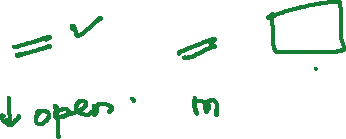 = ✓ =
↓ open. m